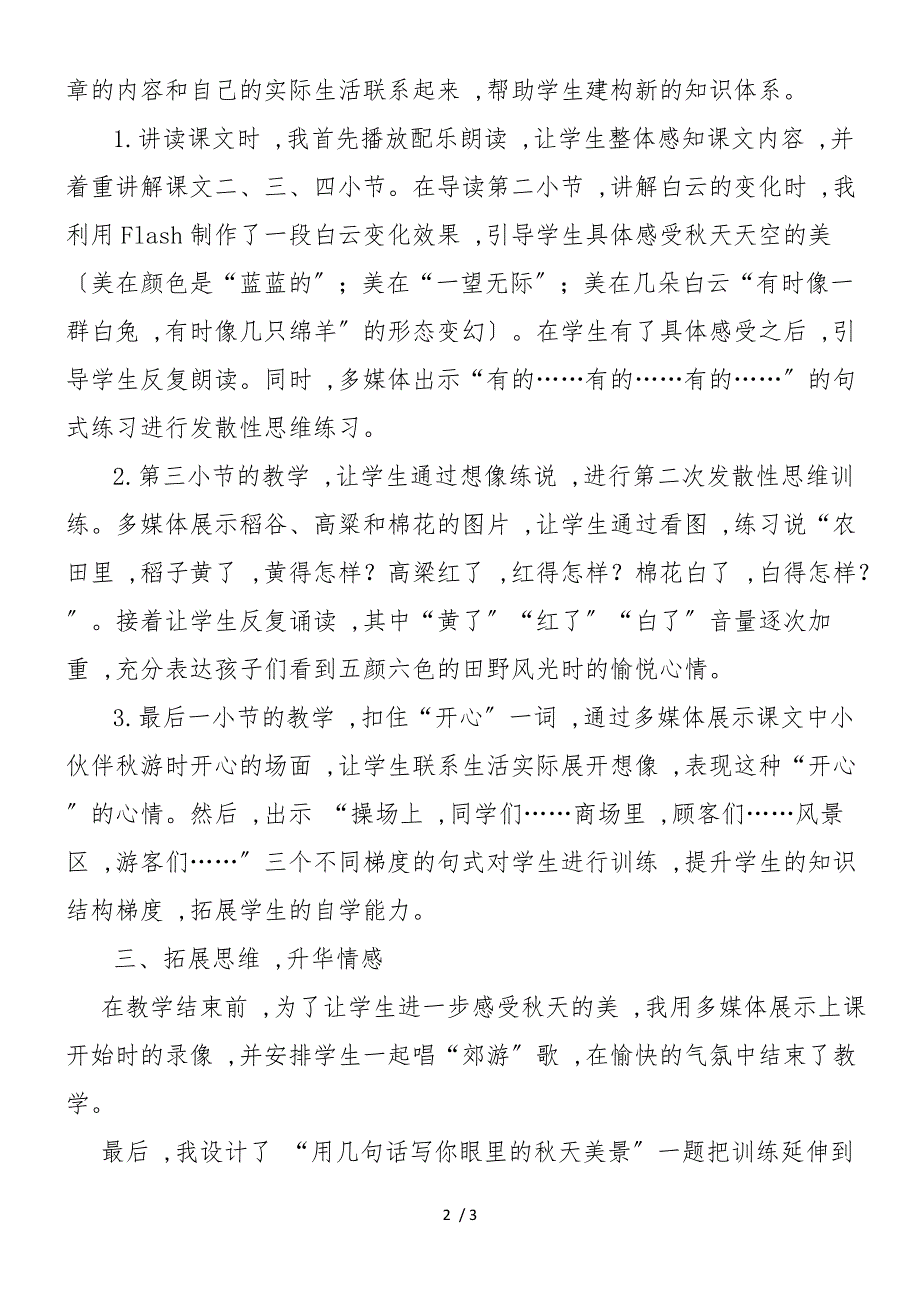 章的内容和自己的实际生活联系起来 ,帮助学生建构新的知识体系。
1.讲读课文时 ,我首先播放配乐朗读 ,让学生整体感知课文内容 ,并
着重讲解课文二、三、四小节。在导读第二小节 ,讲解白云的变化时 ,我
利用 Flash 制作了一段白云变化效果 ,引导学生具体感受秋天天空的美
〔美在颜色是“蓝蓝的〞；美在“一望无际〞；美在几朵白云“有时像一
群白兔 ,有时像几只绵羊〞的形态变幻〕。在学生有了具体感受之后 ,引
导学生反复朗读。同时 ,多媒体出示“有的……有的……有的……〞的句
式练习进行发散性思维练习。
2.第三小节的教学 ,让学生通过想像练说 ,进行第二次发散性思维训
练。多媒体展示稻谷、高粱和棉花的图片 ,让学生通过看图 ,练习说“农
田里 ,稻子黄了 ,黄得怎样？高梁红了 ,红得怎样？棉花白了 ,白得怎样？
〞。接着让学生反复诵读 ,其中“黄了〞“红了〞“白了〞音量逐次加
重 ,充分表达孩子们看到五颜六色的田野风光时的愉悦心情。
3.最后一小节的教学 ,扣住“开心〞一词 ,通过多媒体展示课文中小
伙伴秋游时开心的场面 ,让学生联系生活实际展开想像 ,表现这种“开心
〞的心情。然后 ,出示 “操场上 ,同学们……商场里 ,顾客们……风景
区 ,游客们……〞三个不同梯度的句式对学生进行训练 ,提升学生的知识
结构梯度 ,拓展学生的自学能力。
三、拓展思维 ,升华情感
在教学结束前 ,为了让学生进一步感受秋天的美 ,我用多媒体展示上课
开始时的录像 ,并安排学生一起唱“郊游〞歌 ,在愉快的气氛中结束了教
学。
最后 ,我设计了 “用几句话写你眼里的秋天美景〞一题把训练延伸到
2 / 3